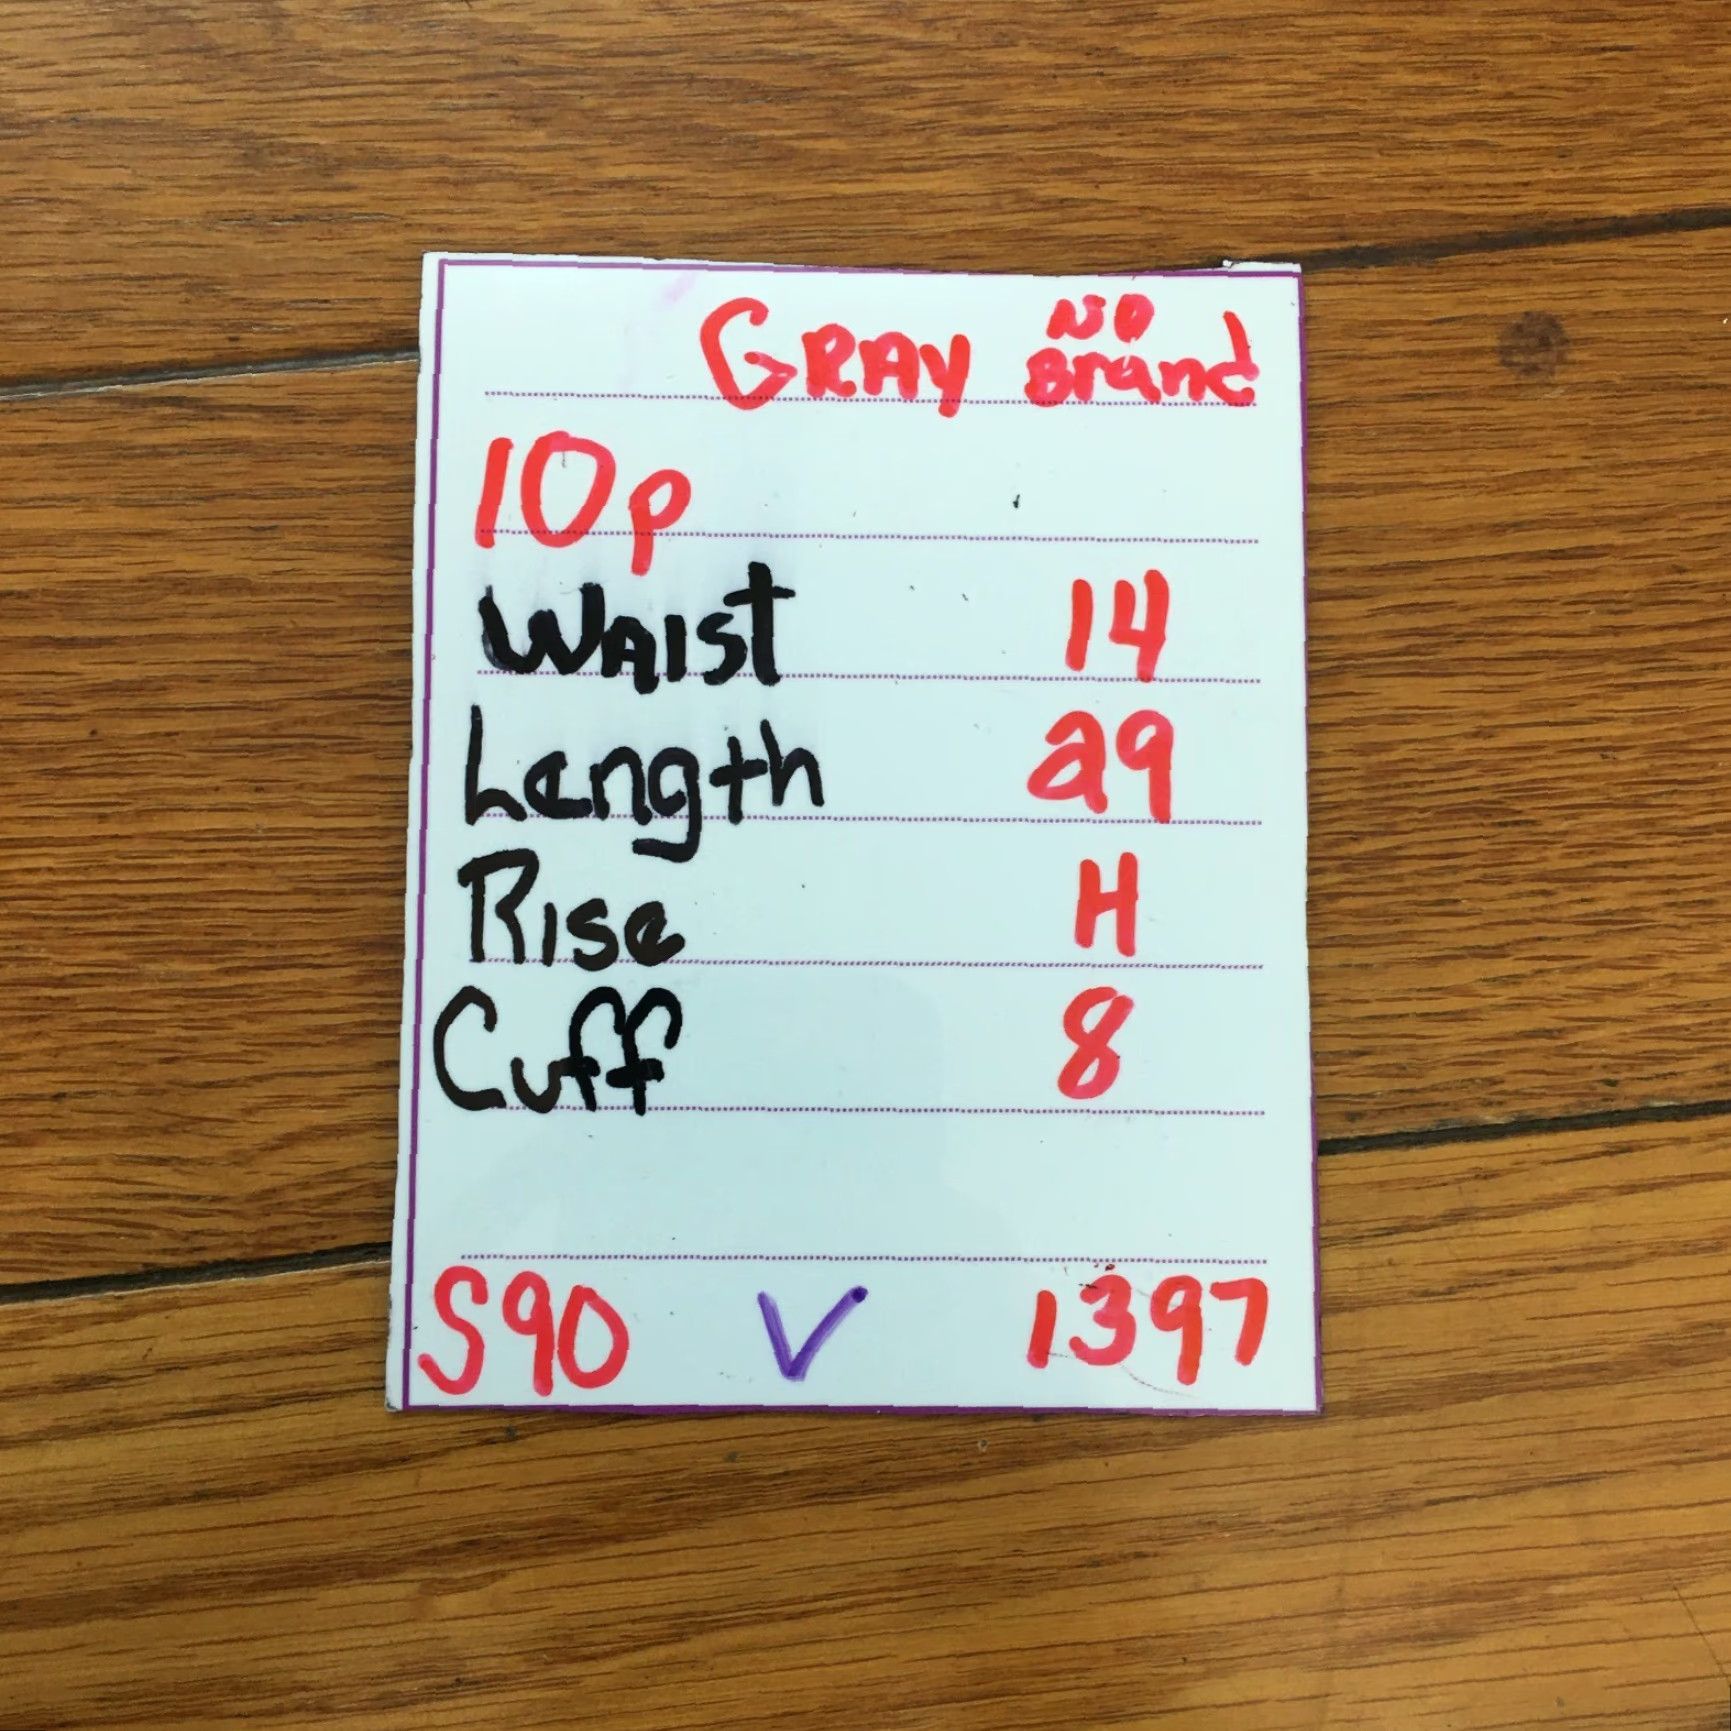 GRAY NO Brand
10p
WAIST 14
Length 29
Rise H
Cuff 8
S90 V 1397